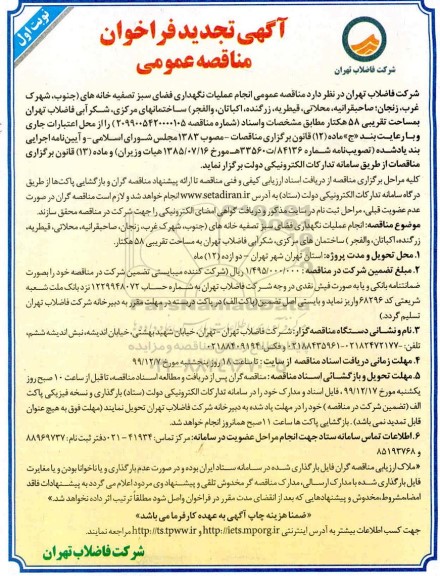 نوبت اول
آگهی تجدید فراخوان
مناقصه عمومی
شرکت فاضلاب تهران
شرکت فاضلاب تهران در نظر دارد مناقصه عمومی انجام عملیات نگهداری فضای سبز تصفیه خانه های (جنوب، شهرک
غرب، زنجان؛ صاحبقرانیه، محلاتی، قیطریه، زرگنده، اکباتان، والفجر) ساختمانهای مرکزی، شکرآبی فاضلاب تهران
بمساحت تقریبی ۵۸ هکتار مطابق مشخصات واسناد (شماره مناقصه ۲۰۹۹۰۰۵۴۲۰۰۰۰۱۰۵) را از محل اعتبارات جاری
و با رعایت بند «ج» ماده (۱۲) قانون برگزاری مناقصات - مصوب ۱۳۸۳ مجلس شورای اسلامی - و آیین‌نامه اجرایی
بند یادشده (تصویب‌نامه شماره ۸۴۱۳۶/ت۳۳۵۶۰هـ مورخ ۱۳۸۵/۰۷/۱۶ هیات وزیران) و ماده (۱۳) قانون برگزاری
مناقصات از طریق سامانه تدارکات الکترونیکی دولت برگزار نماید.
کلیه مراحل برگزاری مناقصه از دریافت اسناد ارزیابی کیفی و فنی مناقصه تا ارائه پیشنهاد مناقصه گران و بازگشایی پاکت‌ها از طریق
درگاه سامانه تدارکات الکترونیکی دولت (ستاد) به آدرس www.setadiran.ir انجام خواهد شد و لازم است مناقصه گران در صورت
عدم عضویت قبلی، مراحل ثبت نام در سایت مذکور و دریافت گواهی امضای الکترونیکی را جهت شرکت در مناقصه محقق سازند.
موضوع مناقصه: انجام عملیات نگهداری فضای سبز تصفیه خانه های (جنوب، شهرک غرب، زنجان، صاحبقرانیه، محلاتی، قیطریه،
زرگنده، اکباتان، والفجر) ساختمان های مرکزی، شکرآبی فاضلاب تهران به مساحت تقریبی ۵۸ هکتار.
۱. محل تحویل و مدت پروژه: استان تهران شهر تهران - دوازده (۱۲) ماه.
۲. مبلغ تضمین شرکت در مناقصه: ۱/۴۹۵/۰۰۰/۰۰۰ ریال (شرکت کننده میبایستی تضمین شرکت در مناقصه خود را بصورت
ضمانتنامه بانکی و یا به صورت فیش نقدی در وجه شرکت فاضلاب تهران به شماره حساب ۱۲۲۹۹۴۸۰۷۲ نزد بانک ملت شعبه
شریعتی کد ۶۸۲۹۶ واریز نماید و بایستی اصل تضمین (پاکت الف) در پاکت دربسته در مهلت مقرر به دبیرخانه شرکت فاضلاب تهران
تسلیم گردد.)
۳. نام و نشانی دستگاه مناقصه‌گزار: شرکت فاضلاب تهران - تهران، خیابان شهید بهشتی، خیابان اندیشه، نبش اندیشه ششم،
تلفن: ۰۲۱۸۲۴۷۲۱۷۷-۰۲۱۸۸۴۳۵۹۶۱
۴. مهلت زمانی دریافت اسناد مناقصه از سایت: تا ساعت ۱۸ روز پنجشنبه مورخ ۹۹/۱۲/۷
۵. مهلت تحویل و بازگشائی اسناد مناقصه: مناقصه‌گران پس از دریافت و مطالعه اسناد مناقصه، تا قبل از ساعت ۱۰ صبح روز
یکشنبه مورخ ۹۹/۱۲/۱۷، فایل اسناد و مدارک خود را در سامانه تدارکات الکترونیکی دولت (ستاد) بارگذاری و نسخه فیزیکی پاکت
الف (تضمین شرکت در مناقصه) خود را در مهلت یاد شده به دبیرخانه شرکت فاضلاب تهران تحویل نمایند (مهلت فوق به هیچ عنوان
قابل تمدید نمی باشد). بازگشایی پاکت ها ساعت ۱۱ صبح همانروز انجام خواهد شد.
۶. اطلاعات تماس سامانه ستاد جهت انجام مراحل عضویت در سامانه: مرکز تماس: ۴۱۹۳۴-۰۲۱ دفتر ثبت نام: ۸۸۹۶۹۷۳۷
و ۸۵۱۹۳۷۶۸
«ملاک ارزیابی مناقصه گران فایل بارگذاری شده در سامانه ستاد ایران بوده و در صورت عدم بارگذاری و یا ناخوانا بودن و یا مغایرت
فایل بارگذاری شده با مدارک ارسالی، مدارک مناقصه گر مخدوش تلقی و پیشنهاد وی مردود اعلام می گردد به پیشنهادات فاقد
امضا، مشروط، مخدوش و پیشنهادهایی که بعد از انقضای مدت مقرر در فراخوان واصل شود مطلقاً ترتیب اثر داده نخواهد شد.»
«ضمنا هزینه چاپ آگهی به عهده کارفرما می باشد»
جهت کسب اطلاعات بیشتر به آدرس اینترنتی http://iets.mporg.ir و http://ts.tpww.ir مراجعه نمایند.
شرکت فاضلاب تهران